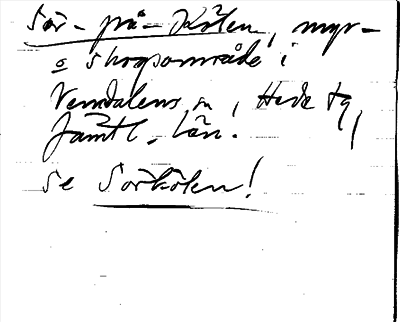 Sör-på-Kölen, myr-
o skogsområde i
Vemdalens sn, Hede tg,
Jämtl. län.
Se Sörkölen!